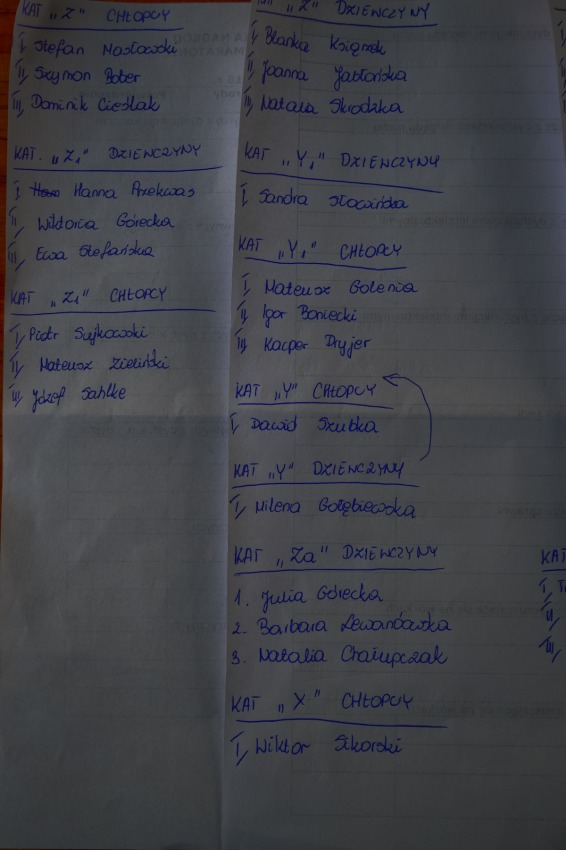 KAT „Z" CHŁOPCY
I, Stefan Masłowski
II, Szymon Bober
III, Dominik Cieślak
KAT. „Z₁" DZIEWCZYNY
I, Hanna
II, Wiktoria Górecka
III, Ewa Stefańska
KAT „Z₁" CHŁOPCY
I, Piotr Sujkowski
II, Mateusz Zieliński
III, Józef Sahlke
KAT „Z" DZIEWCZYNY
I, Blanka Książek
II, Joanna Jabłońska
III, Natalia Skrodzka
KAT „Y₁" DZIEWCZYNY
I, Sandra Słowińska
KAT „Y₁" CHŁOPCY
I, Mateusz Golenia
II, Igor Boniecki
III, Kacper Dryjer
KAT „Y" CHŁOPCY
I, Dawid Szubka
KAT „Y" DZIEWCZYNY
I, Milena Gołębiewska
KAT „Za" DZIEWCZYNY
1. Julia Górecka
2. Barbara Lewandowska
3. Natalia Chałupczak
KAT „X" CHŁOPCY
I, Wiktor Sikorski
KAT
I,
II,
III,